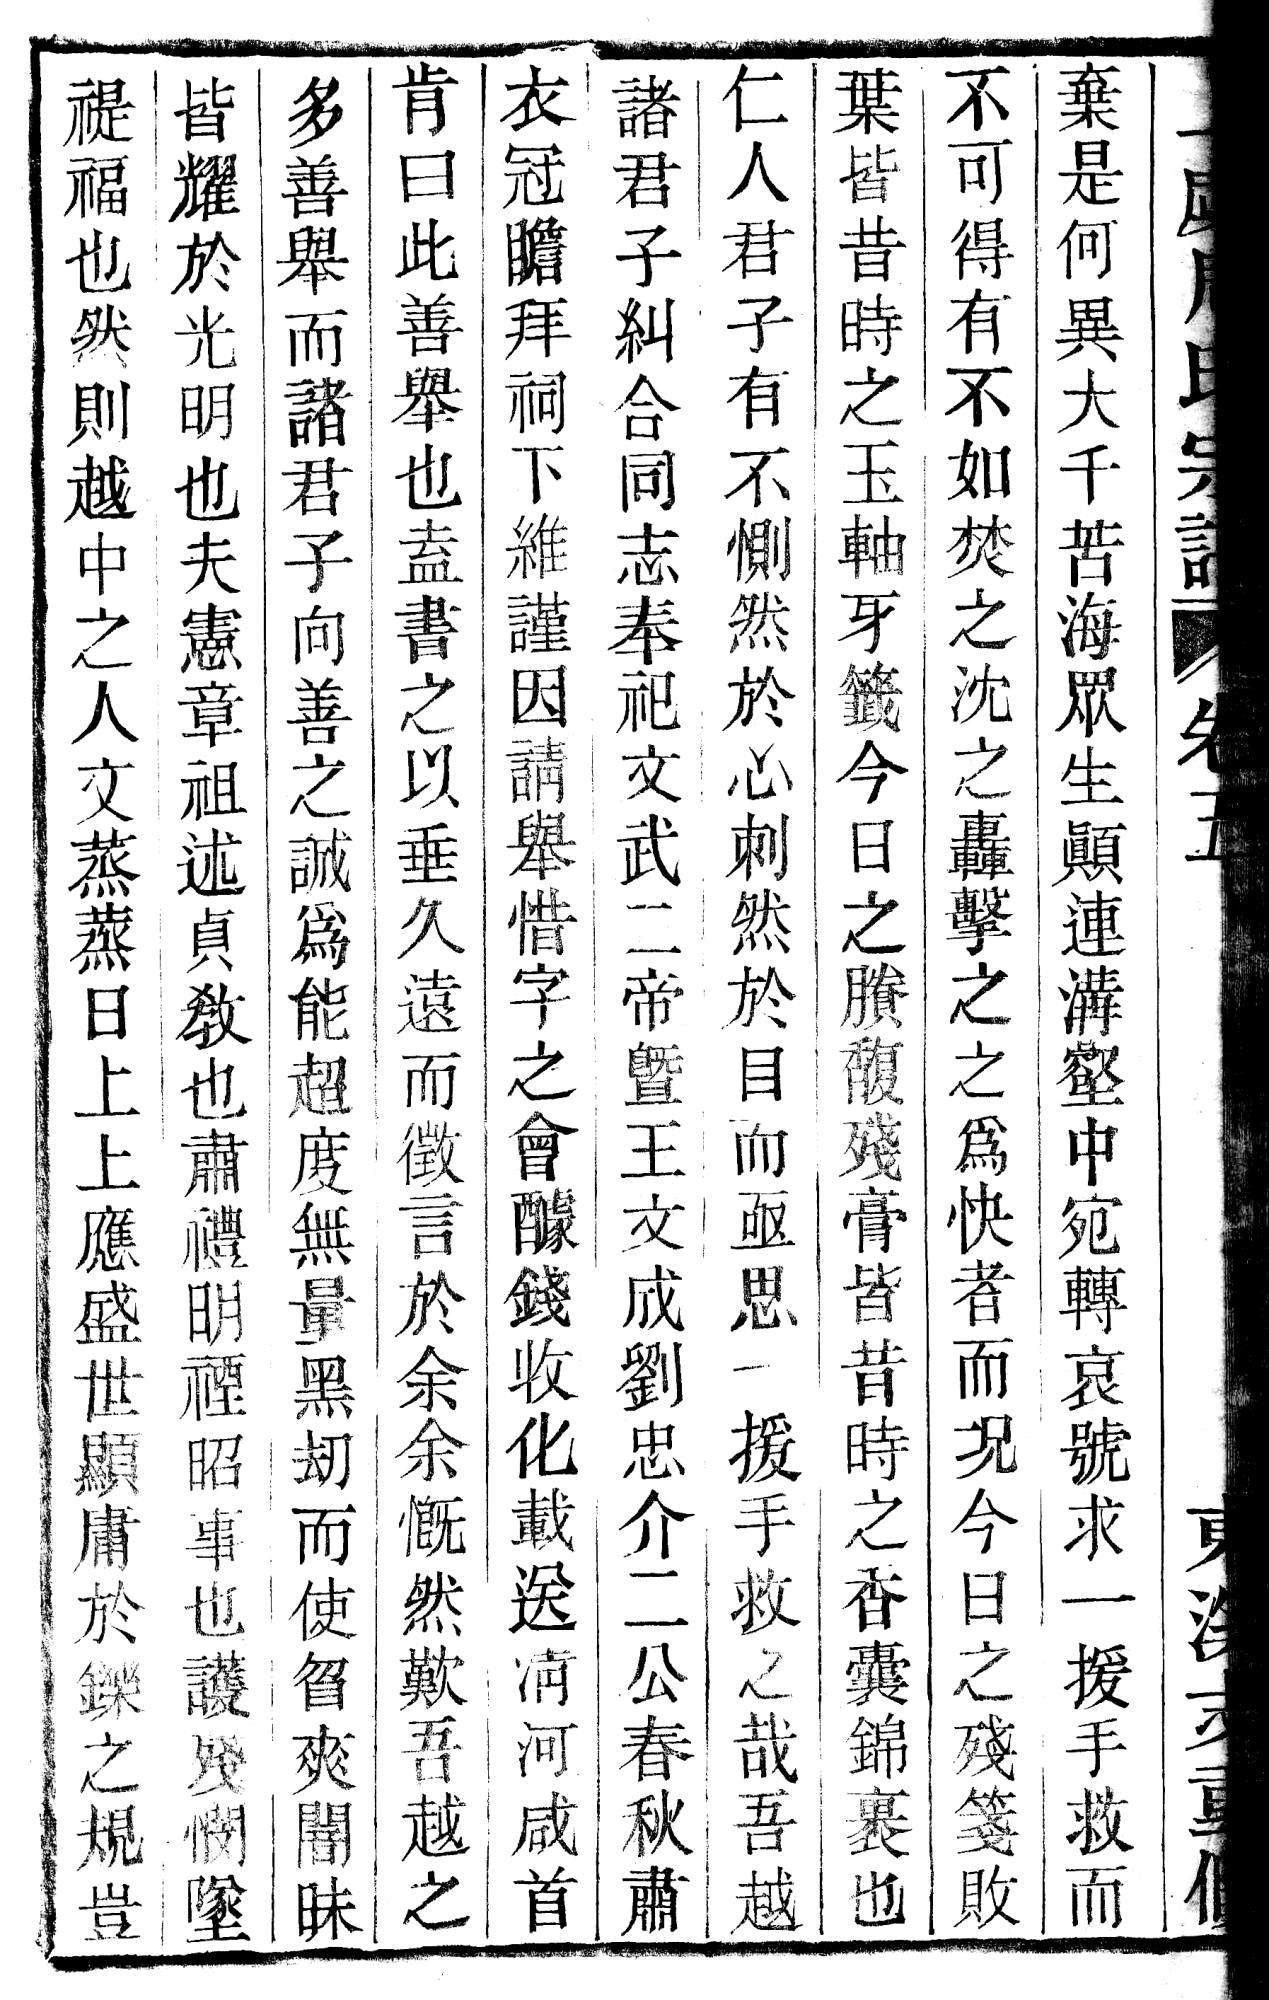 氏宗譜 卷五
棄是何異大千苦海眾生顚連溝壑中宛轉哀號求一援手救而
不可得有不如焚之沈之轟擊之之爲快者而况今日之殘箋敗
葉皆昔時之玉軸牙籤今日之賸馥殘膏皆昔時之香囊錦裹也
仁人君子有不惻然於心刺然於目而亟思一援手救之哉吾越
諸君子糾合同志奉祀文武二帝曁王文成劉忠介二公春秋肅
衣冠瞻拜祠下維謹因請舉惜字之會醵錢收化載送淸河咸首
肯曰此善舉也盍書之以垂久遠而徵言於余余慨然歎吾越之
多善舉而諸君子向善之誠爲能超度無量黑刧而使曶爽闇昧
皆耀於光明也夫憲章祖述貞敎也肅禮明禋昭事也護殘憫墜
禔福也然則越中之人文蒸蒸日上上應盛世顯庸於鑠之規豈